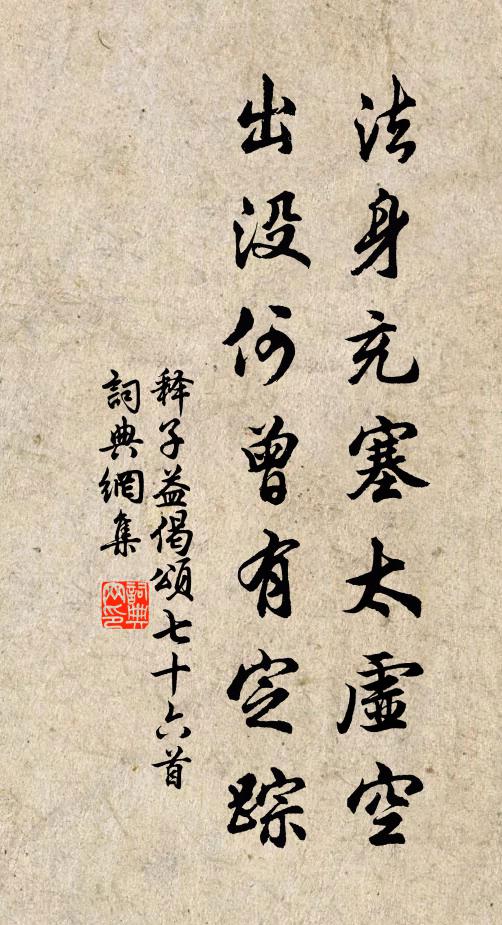 法身充塞太虚空
出没何曾有定踪
释子益偈頌七十六首
詞典網集
詞典网印